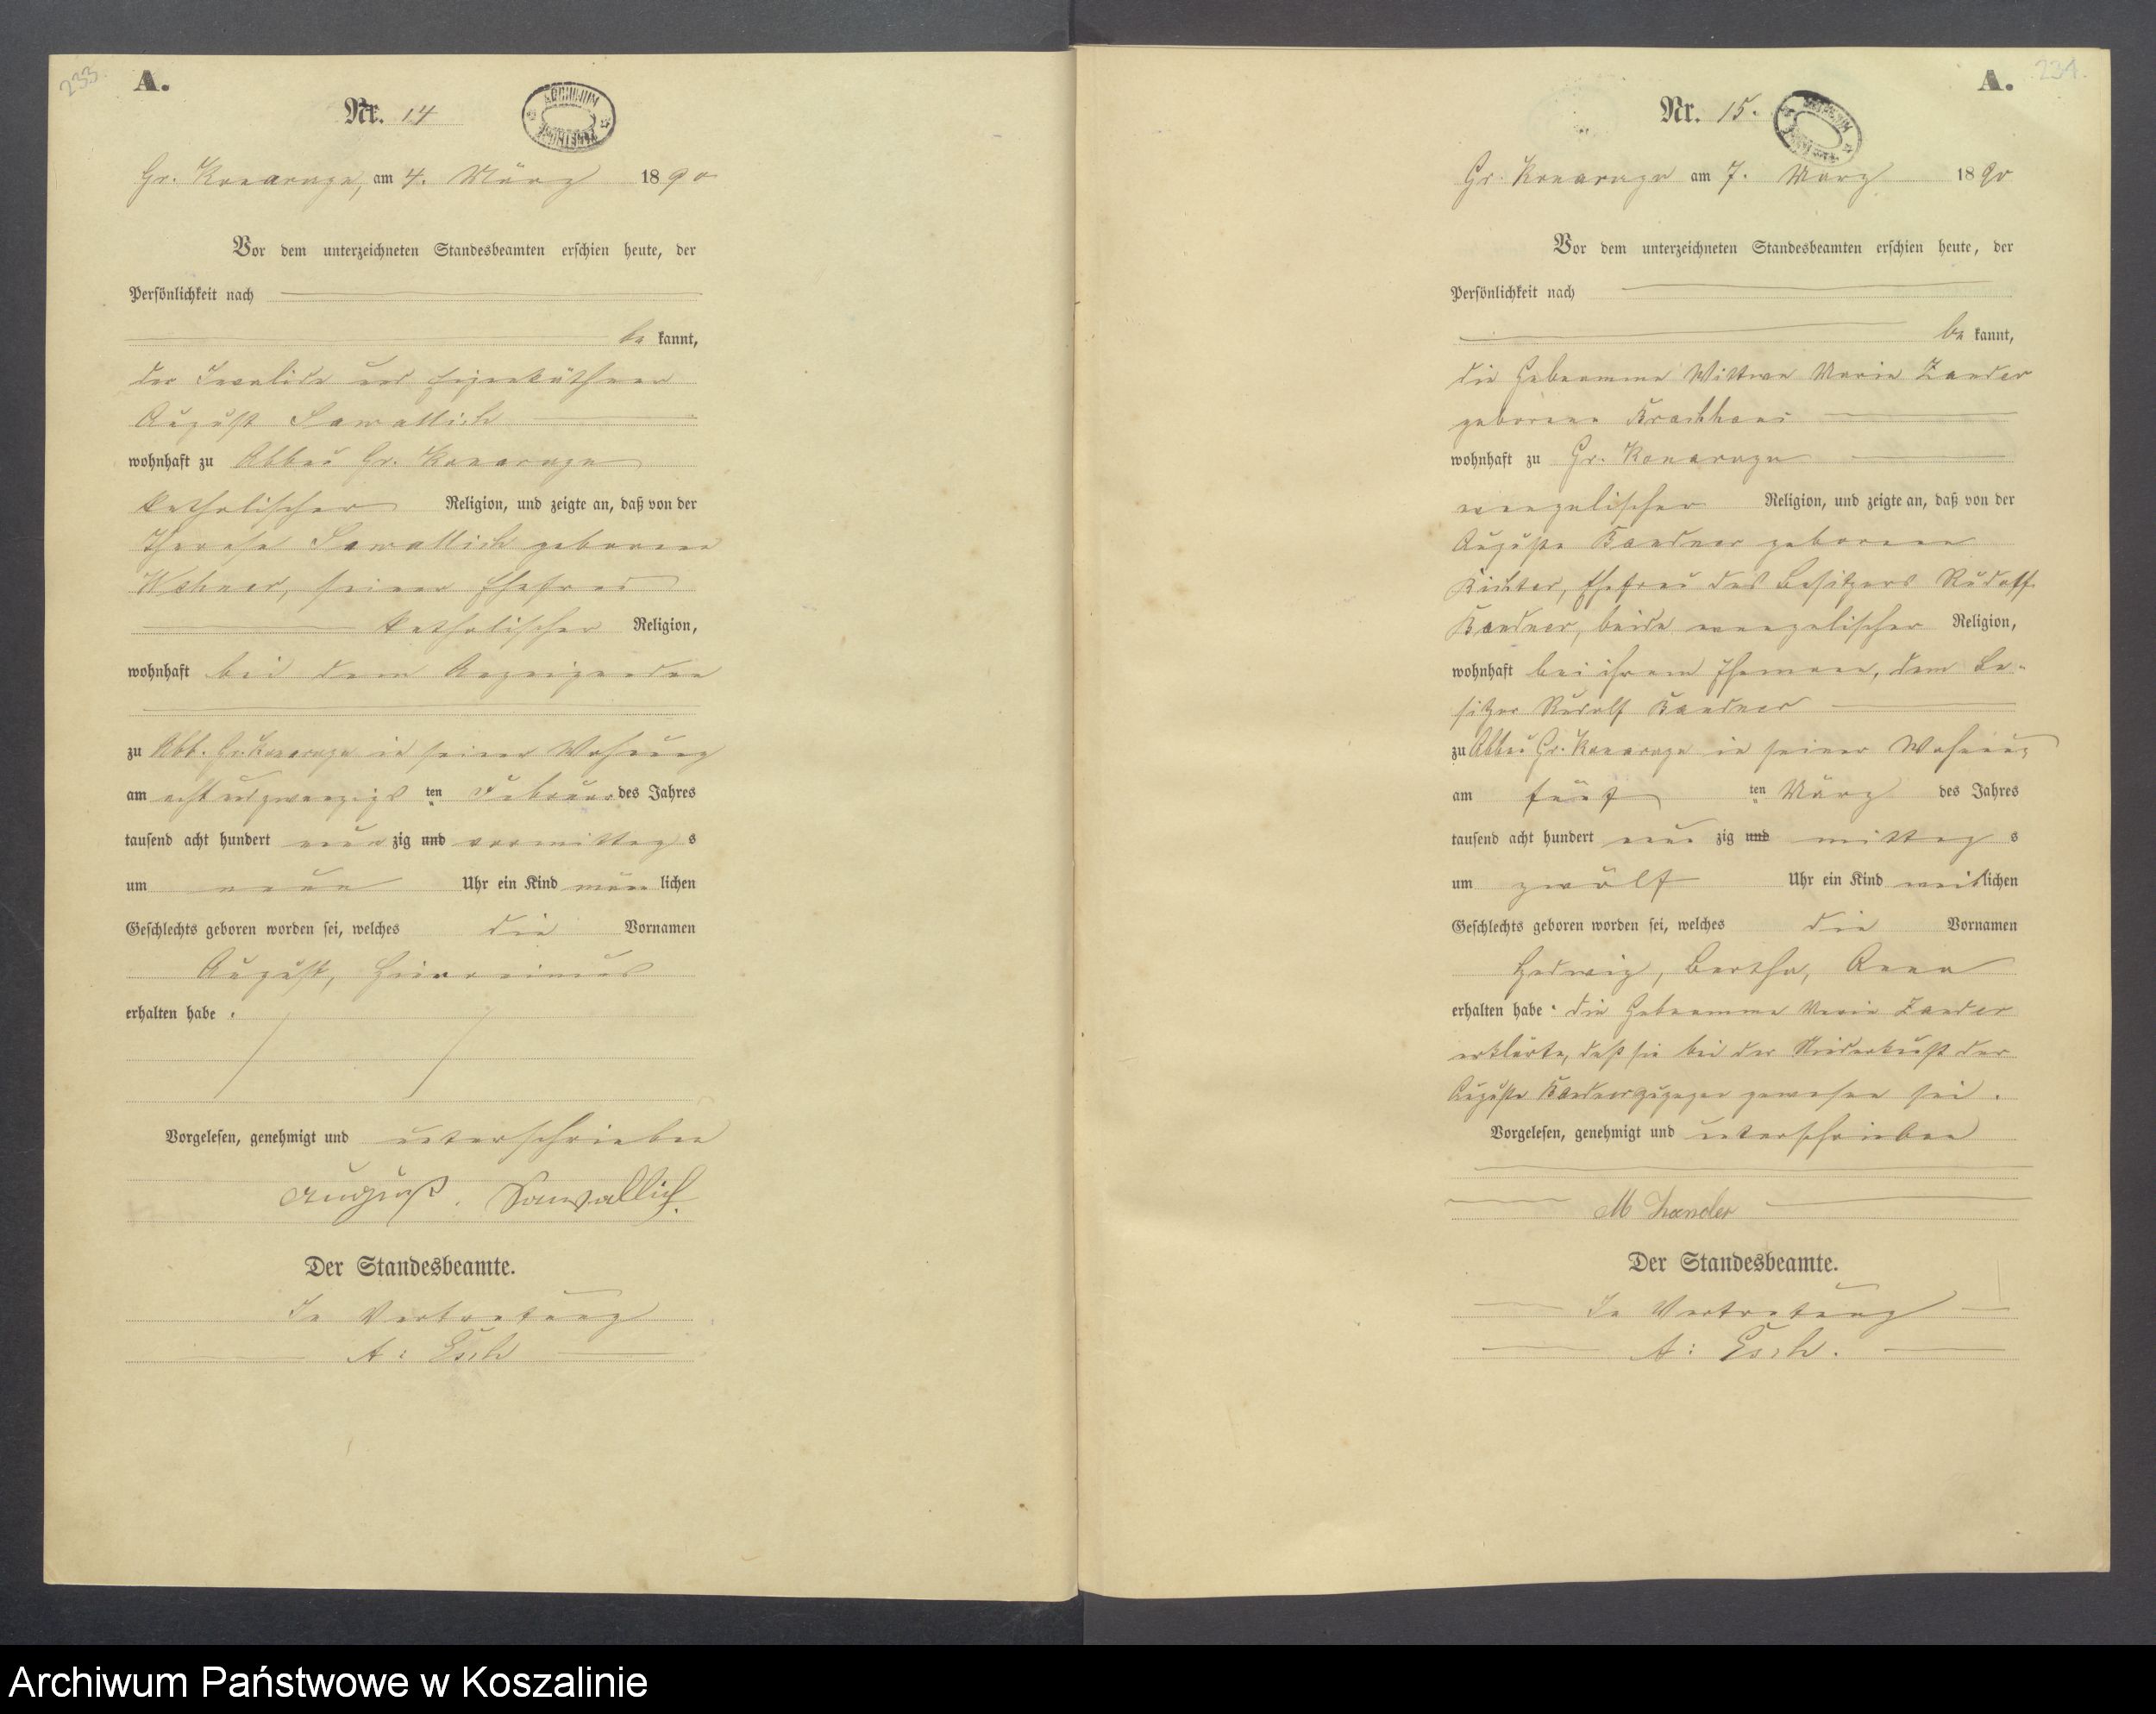 233.
A.
Nr. 14
ARCHIWUM
Gr. Konarzyn, am 4. März 1890
Vor dem unterzeichneten Standesbeamten erschien heute, der
Persönlichkeit nach
be kannt,
der Invalide und Eigenkäthner
August Sawallich
wohnhaft zu Abbau Gr. Konarzyn
katholischer Religion, und zeigte an, daß von der
Therese Sawallich geborene
seiner Ehefrau
katholischer Religion,
wohnhaft bei dem Anzeigenden
zu Abb. Gr. Konarzyn in seiner Wohnung
am acht und zwanzigs ten Februar des Jahres
tausend acht hundert neun zig und vormittag s
um neun Uhr ein Kind männ lichen
Geschlechts geboren worden sei, welches die Vornamen
August,
erhalten habe.
Vorgelesen, genehmigt und unterschrieben
August. Sawallich.
Der Standesbeamte.
In Vertretung
A: Esch
234.
A.
Nr. 15.
Gr. Konarzyn am 7. März 1890
Vor dem unterzeichneten Standesbeamten erschien heute, der
Persönlichkeit nach
be kannt,
die Hebeamme Wittwe Marie Zander
geborene
wohnhaft zu Gr. Konarzyn
evangelischer Religion, und zeigte an, daß von der
Auguste geborene
Richter, Ehefrau des Besitzers Rudolf
beide evangelischer Religion,
wohnhaft bei ihrem Ehemann, dem Be-
sitzer Rudolf
zu Abbau Gr. Konarzyn in seiner Wohnung
am fünf ten März des Jahres
tausend acht hundert neun zig und mittag s
um zwölf Uhr ein Kind weiblichen
Geschlechts geboren worden sei, welches die Vornamen
Hedwig, Bertha, Anna
erhalten habe. die Hebeamme Marie Zander
erklärte, daß sie bei der Niederkunft der
Auguste zugegen gewesen sei.
Vorgelesen, genehmigt und unterschrieben
M Zander
Der Standesbeamte.
In Vertretung
A: Esch.
Archiwum Państwowe w Koszalinie